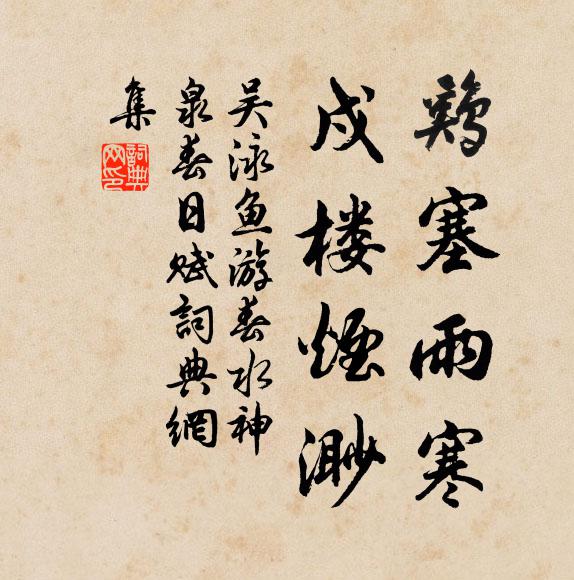 鷄塞雨寒
戍楼煙渺
吴泳鱼游春水神
泉春日赋詞典網
集
詞典
网印